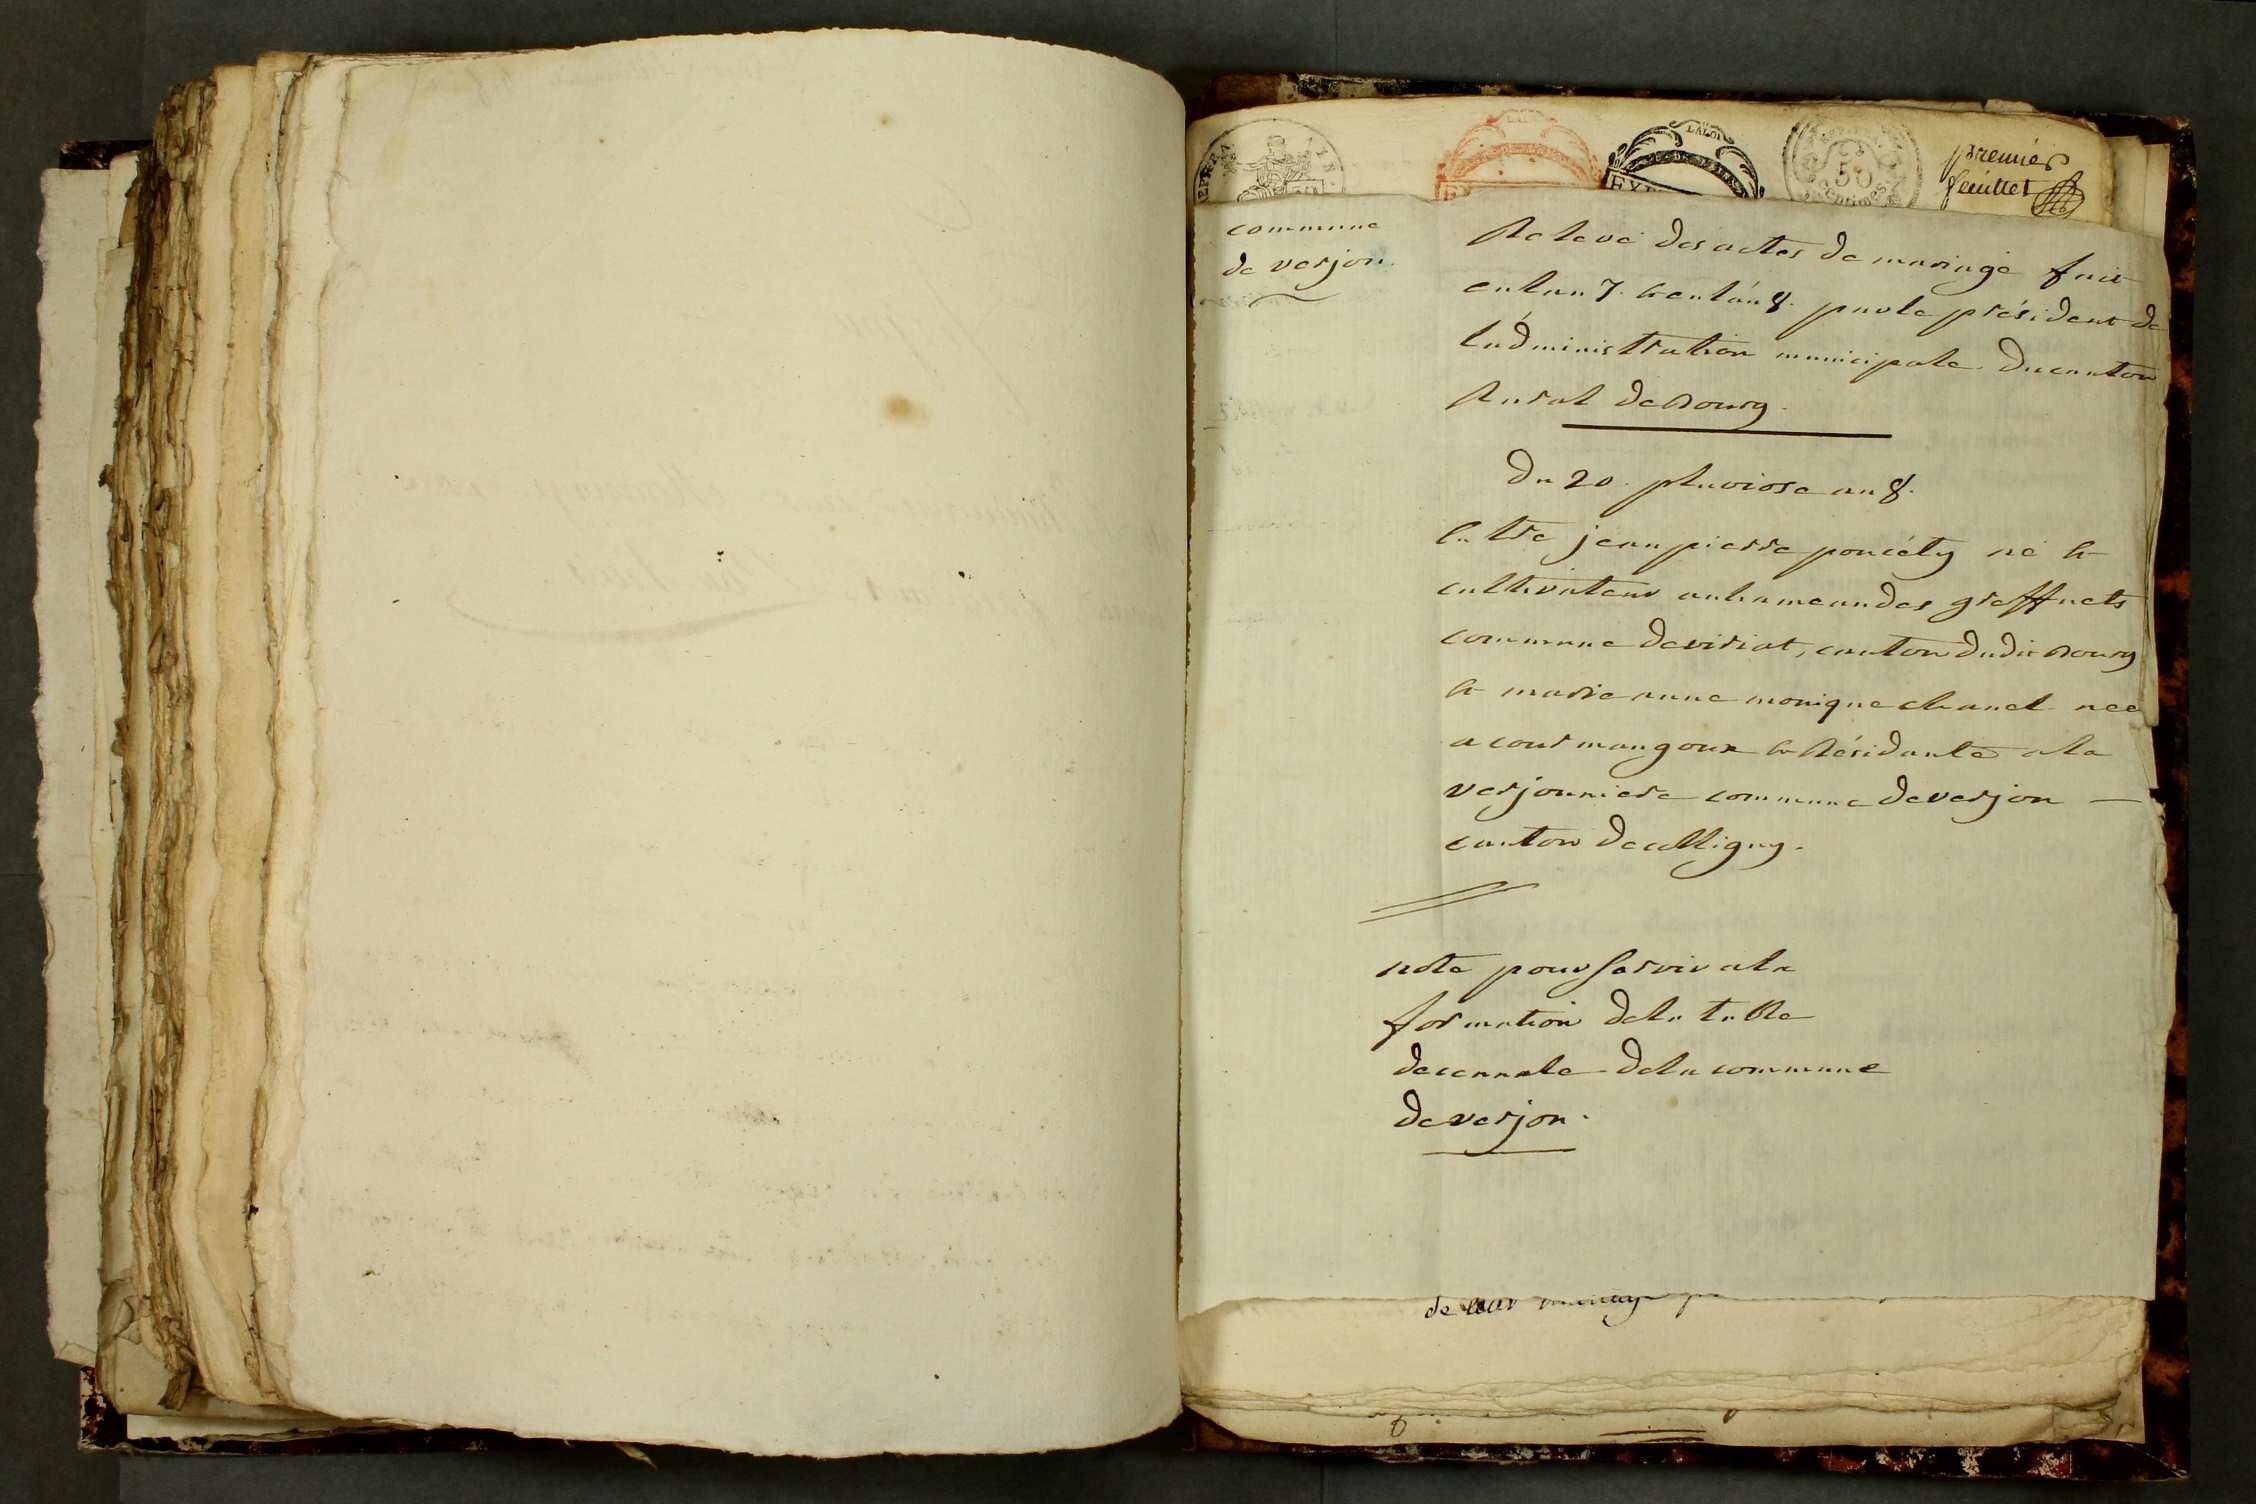 premier
feuillet
LALOI
50
centimes
commune
de verjon
Relevé des actes de mariage fait
en lan 7. et en lán 8. par le président de
ládministration municipale du canton
Rural de Bourg.
Du 20. pluviose an 8.
Entre jean pierre poncéty né et
cultivateur au hameau des greffnets
commune de viriat, canton dudit Bourg
et marie anne monique chanel nee
a courmangoux et Résidante a la
verjonniere commune de verjon —
canton de colligny.
note pour servir a la
formation de la table
decennale de la commune
de verjon.
de leur mariage